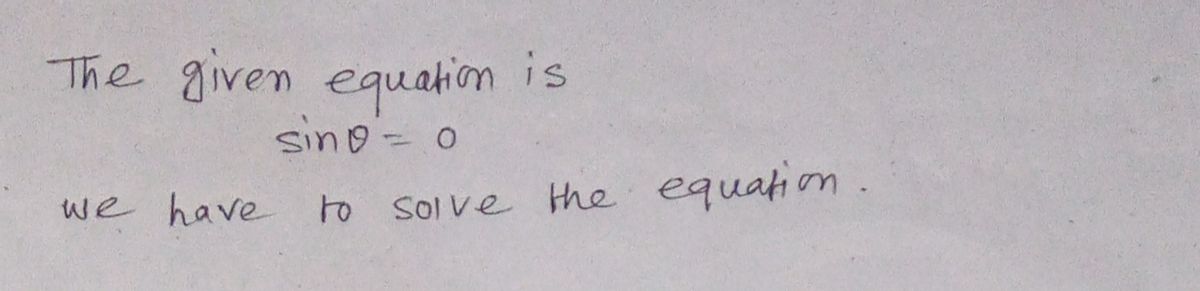 The given equation is
sinθ = 0
we have to solve the equation.